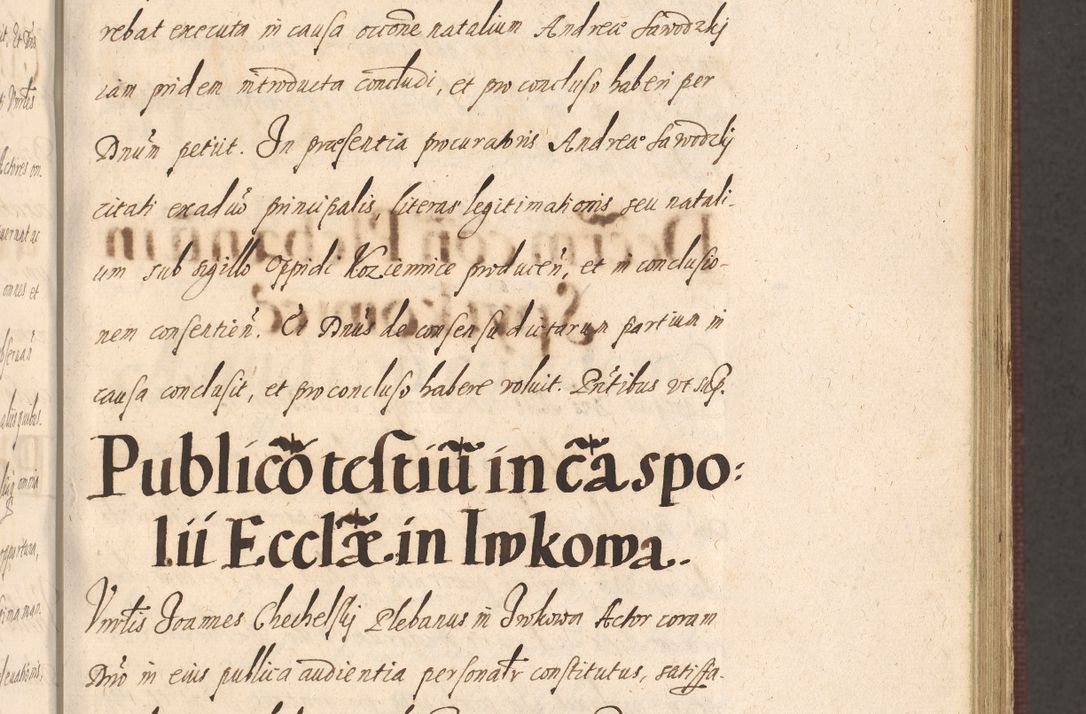 rebat executa in causa occõne natalium Andreæ Sawodzkj
iam pridem introducta concludi, et pro concluso haberi per
Dnum petiit. In præsentia procuratoris Andreæ Sawodzkij
citati ex aduo principalis, literas legitimationis seu natali-
um sub sigillo oppidi Koziennice producen̄, et in conclusio-
nem consentien̄. Et Dnus de consensu dictarum partium in
causa conclusit, et pro concluso habere voluit. Pntibus vt sup.
Publicõ testiũ in cã spo:
lii Ecclæ in Iwkowa.
Vnrlis Joannes Chechelskij Plebanus in Iwkowa Actor coram
Dno in eius publica audientia personalr constitutus, satisfa-